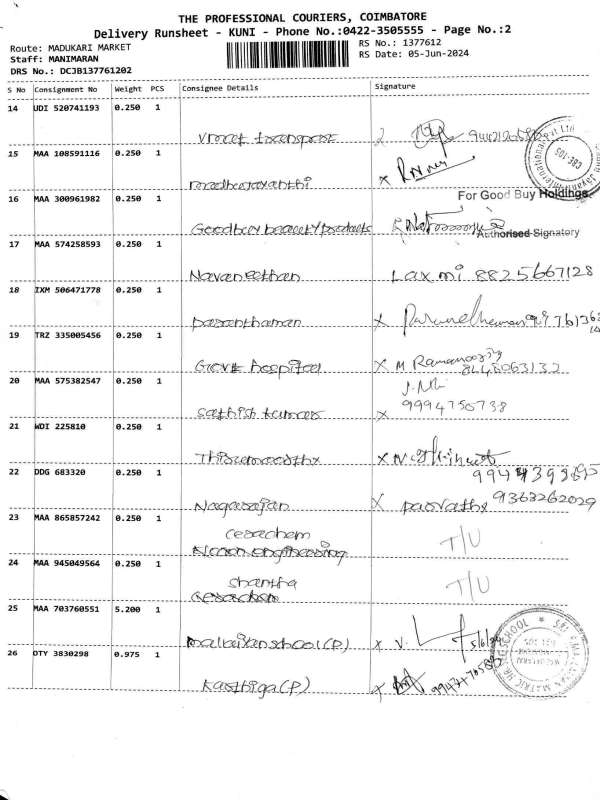 THE PROFESSIONAL COURIERS, COIMBATORE
Delivery Runsheet - KUNI - Phone No.:0422-3505555 - Page No.:2
Route: MADUKARI MARKET
RS No.: 1377612
Staff: MANIMARAN
RS Date: 05-Jun-2024
DRS No.: DCJB137761202
S No Consignment No Weight PCS Consignee Details Signature
14 UDI 520741193 0.250 1
transport
15 MAA 108591116 0.250 1
madhujayanthi
For Good Buy Holdings
16 MAA 300961982 0.250 1
Goodbuy beauty products
Authorised Signatory
17 MAA 574258593 0.250 1
Navaneethan Laxmi 8825667128
18 IXM 506471778 0.250 1
Pasanthaman x
19 TRZ 335005456 0.250 1
Govt hospital x M
8448063132
20 MAA 575382547 0.250 1
Sathish kumar x 9994750738
21 WDI 225810 0.250 1
x
22 DDG 683320 0.250 1
Nagarajan x 9363262029
23 MAA 865857242 0.250 1
cesachem T/U
24 MAA 945049564 0.250 1
shantha T/U
25 MAA 703760551 5.200 1
school (P) x V. 5/6/24
26 DTY 3830298 0.975 1
Kasthiga (P) x